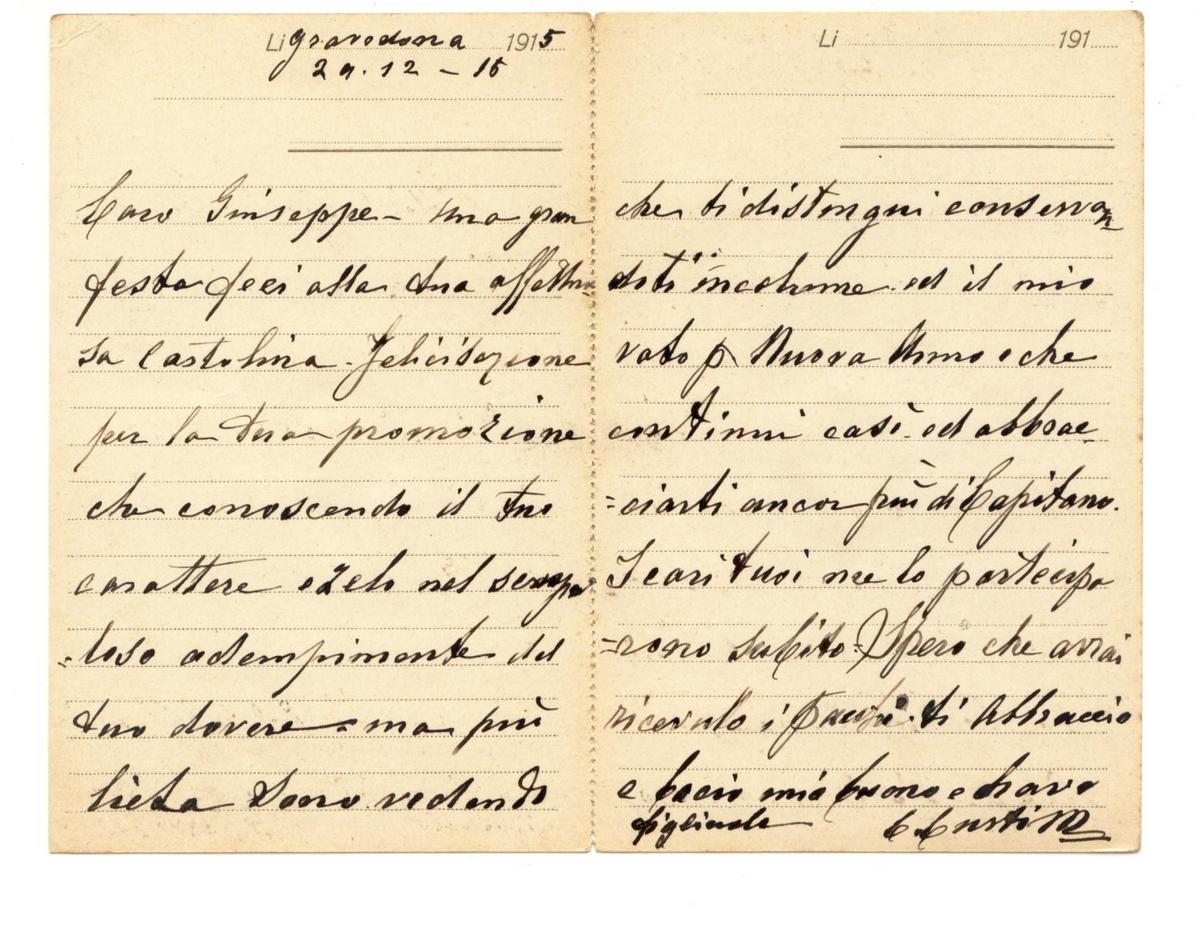 Li Gravedona 1915
29.12-15
Caro Giuseppe - una gran
festa feci alla tua affettuo-
sa Cartolina - Felicitazione
per la tua promozione
che conoscendo il tuo
carattere e zelo nel scrupo
=loso adempimente del
tuo dovere = ma più
lieta sono vedendo
Li 191
che ti distingui conservan
doti incolume. ed il mio
voto p Nuova Anno e che
continui così. ed abbrac-
=ciarti ancor più di Capitano.
I cari tuoi me lo partecipa
=rono subito. Spero che avrai
ricevuto i ti Abbraccio
e bacio mio buono e bravo
figliuolo